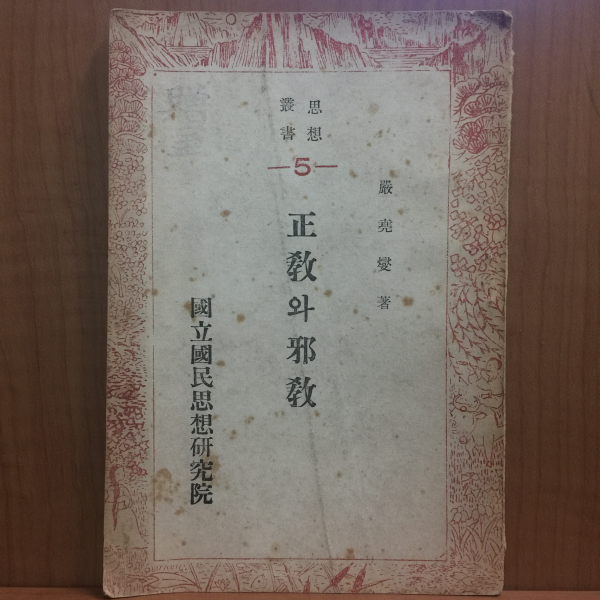 思想
叢書
5
嚴堯燮 著
正敎와 邪敎
國立國民思想研究院